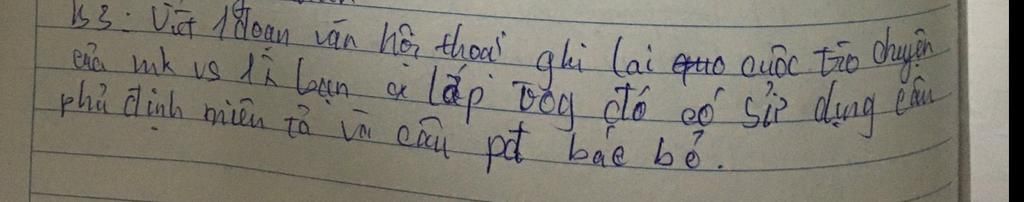 B3: Viết 1 đoạn văn hội thoại ghi lại cuộc trò chuyện
của mk vs 1 bạn ở lớp trog đó có sử dụng câu
phủ định miêu tả và câu pđ bác bỏ.